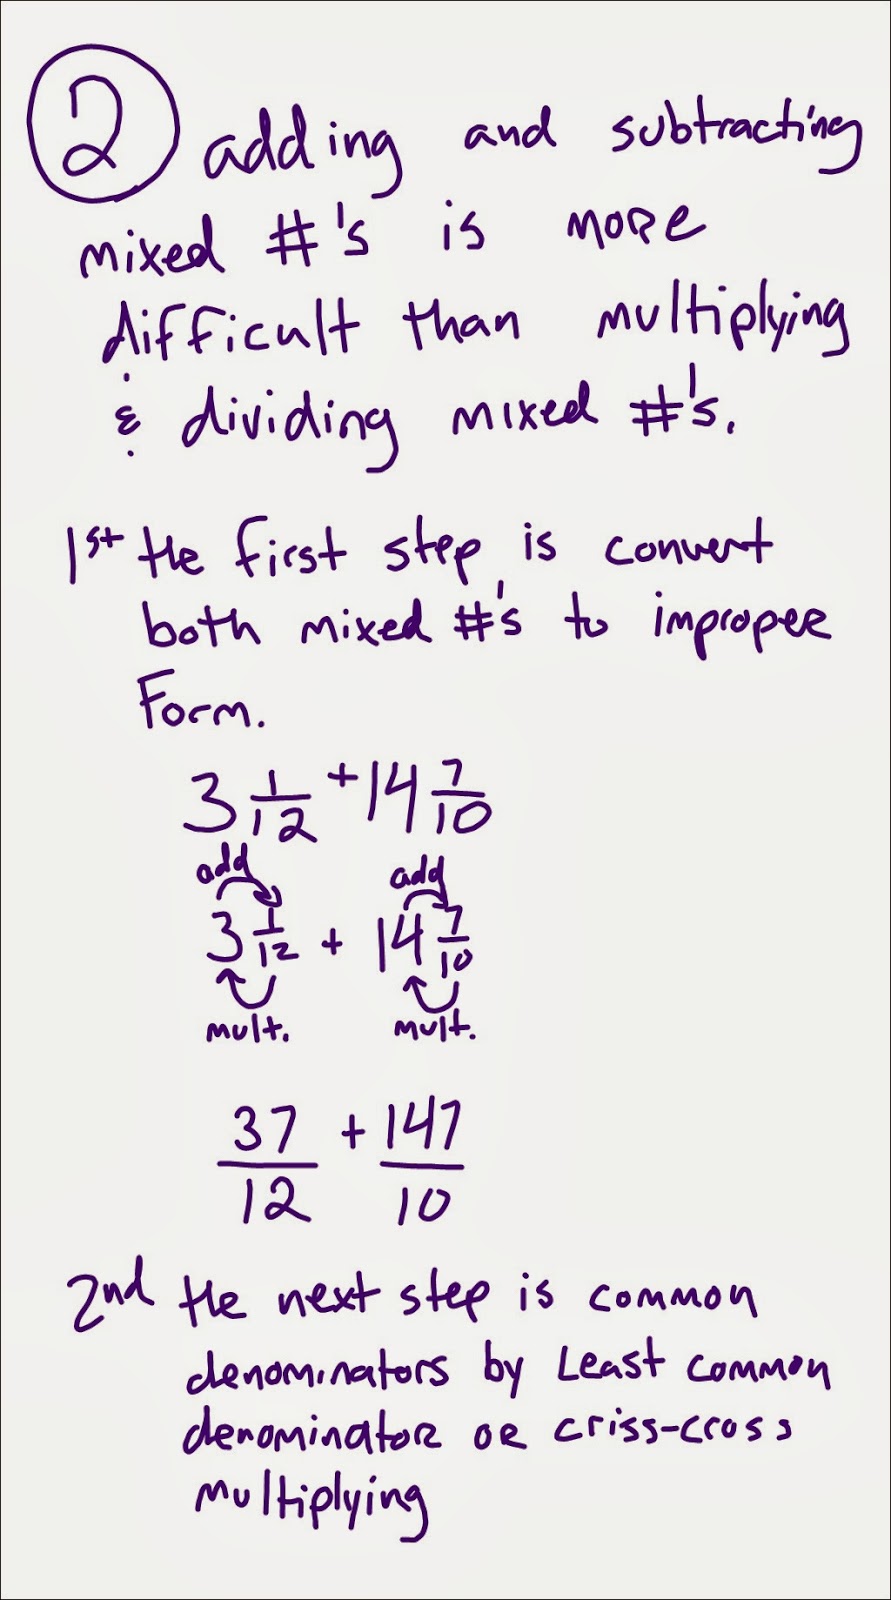 2 adding and subtracting
mixed #'s is more
difficult than multiplying
& dividing mixed #'s.
1st the first step is convert
both mixed #'s to improper
Form.
3 1/12 + 14 7/10
add add
3 1/12 + 14 7/10
mult. mult.
37/12 + 147/10
2nd the next step is common
denominators by Least common
denominator or criss-cross
multiplying